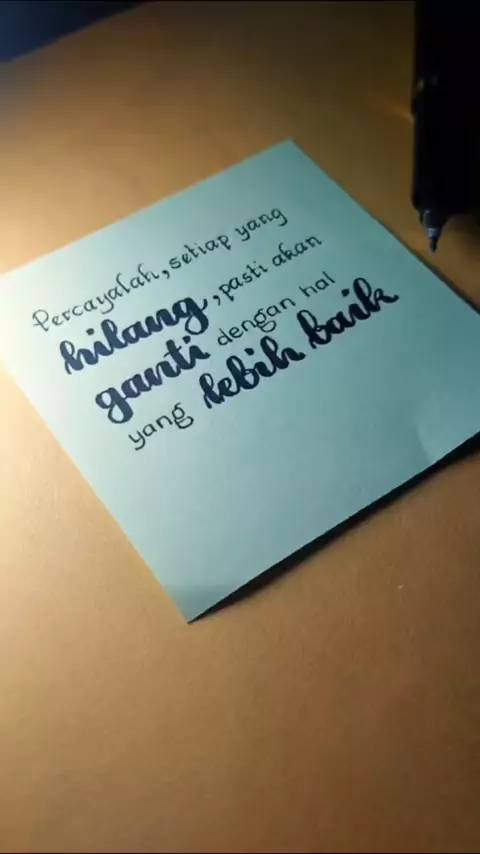 Percayalah, setiap yang
hilang, pasti akan
ganti dengan hal
yang lebih baik